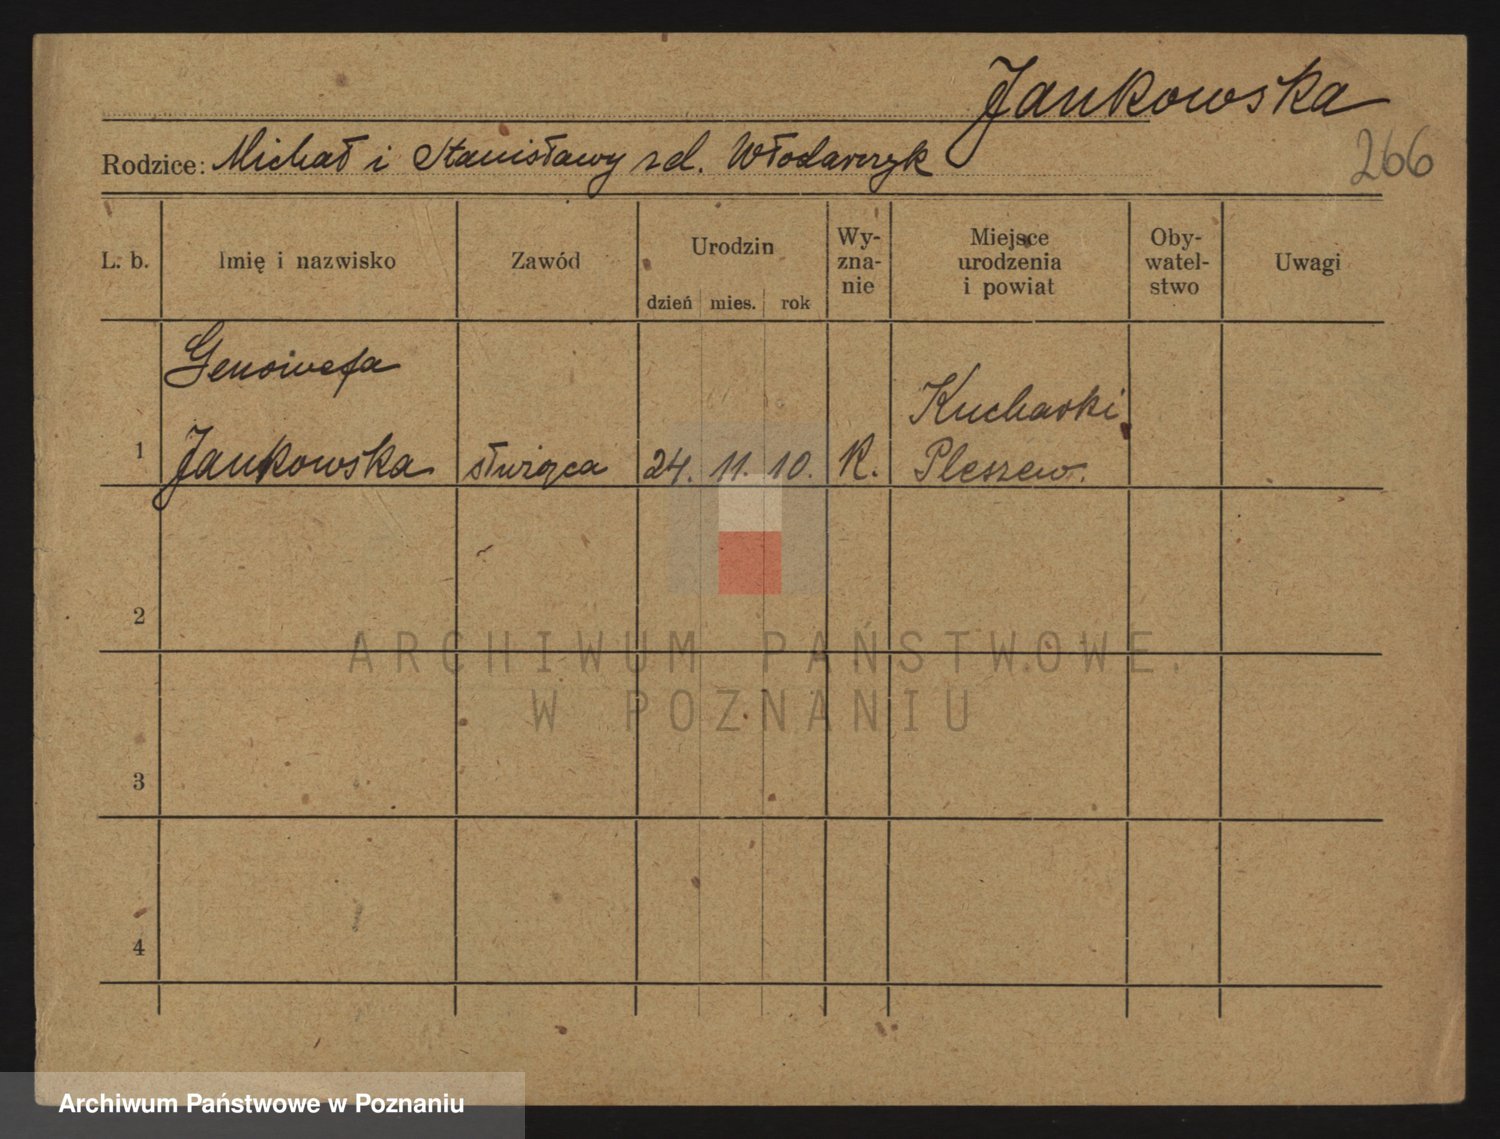 Jankowska
Rodzice: Michał i Stanisławy zd. Włodarczyk
266
L. b. Imię i nazwisko Zawód Urodzin Wy-
zna-
nie Miejsce
urodzenia
i powiat Oby-
watel-
stwo Uwagi
dzień mies. rok
Genowefa
Kucharki
1 Jankowska służąca 24. 11. 10. K. Pleszew.
2
ARCHIWUM PAŃSTWOWE
W POZNANIU
3
4
Archiwum Państwowe w Poznaniu